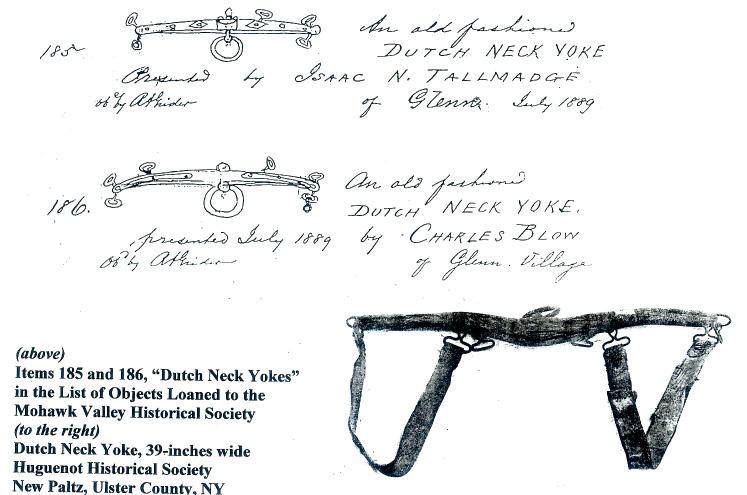 185
An old fashioned
DUTCH NECK YOKE
Presented by ISAAC N. TALLMADGE
ob'd by
of Glenn. July 1889
186.
An old fashioned
DUTCH NECK YOKE.
presented July 1889 by CHARLES BLOW
ob'd by
of Glenn. Village
(above)
Items 185 and 186, “Dutch Neck Yokes”
in the List of Objects Loaned to the
Mohawk Valley Historical Society
(to the right)
Dutch Neck Yoke, 39-inches wide
Huguenot Historical Society
New Paltz, Ulster County, NY